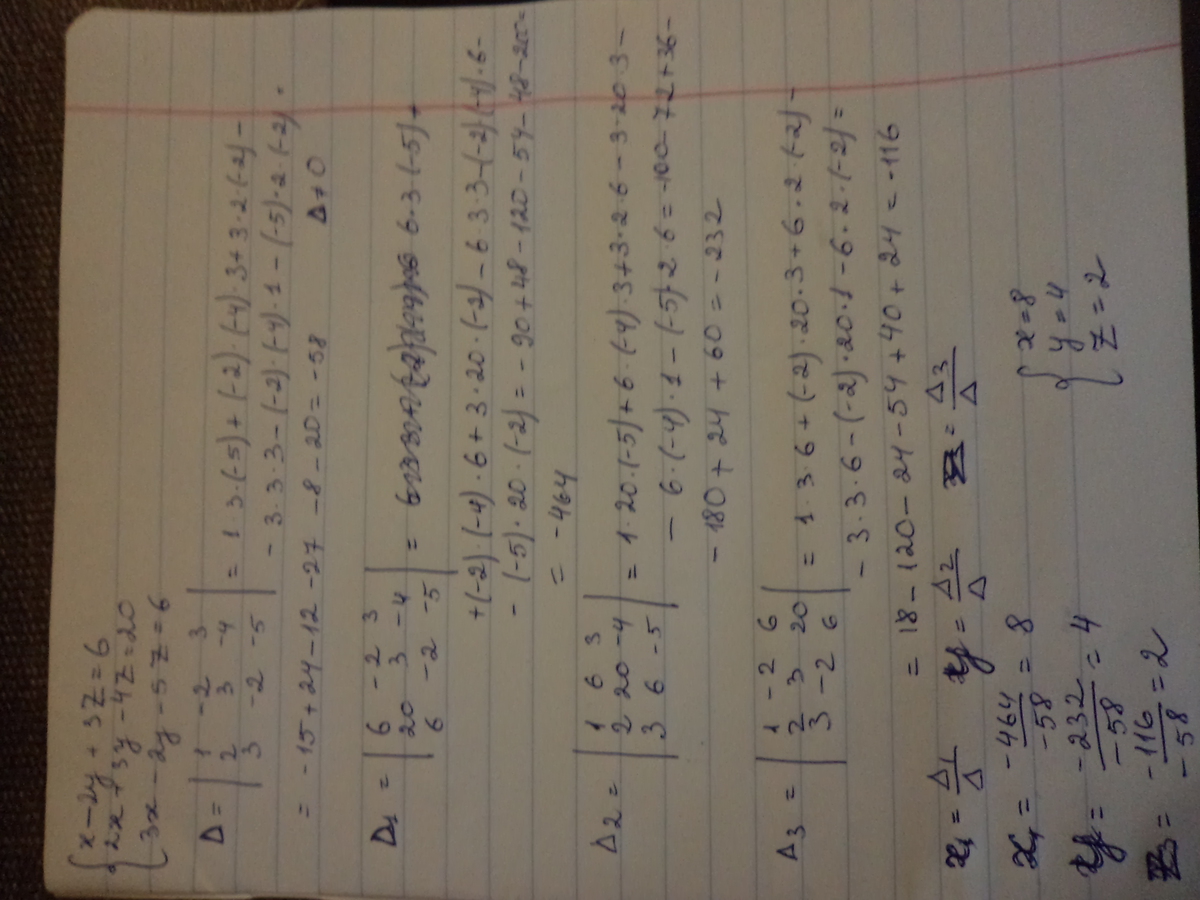 x - 2y + 3z = 6
2x + 3y - 4z = 20
3x - 2y - 5z = 6
Δ = | 1 -2 3
2 3 -4
3 -2 -5 | = 1·3·(-5) + (-2)·(-4)·3 + 3·2·(-2) -
- 3·3·3 - (-2)·(-4)·1 - (-5)·2·(-2) =
= -15 + 24 - 12 - 27 - 8 - 20 = -58 Δ ≠ 0
Δ1 = | 6 -2 3
20 3 -4
6 -2 -5 | = 6·3·(-5) +
+ (-2)·(-4)·6 + 3·20·(-2) - 6·3·3 - (-2)·(-4)·6 -
- (-5)·20·(-2) = -90 + 48 - 120 - 54 - 48 - 200 =
= -464
Δ2 = | 1 6 3
2 20 -4
3 6 -5 | = 1·20·(-5) + 6·(-4)·3 + 3·2·6 - 3·20·3 -
- 6·(-4)·1 - (-5)·2·6 = -100 - 72 + 36 -
- 180 + 24 + 60 = -232
Δ3 = | 1 -2 6
2 3 20
3 -2 6 | = 1·3·6 + (-2)·20·3 + 6·2·(-2) -
- 3·3·6 - (-2)·20·1 - 6·2·(-2) =
= 18 - 120 - 24 - 54 + 40 + 24 = -116
x1 = Δ1/Δ y = Δ2/Δ = Δ3/Δ
x1 = -464/-58 = 8
y = -232/-58 = 4
= -116/-58 = 2
x = 8
y = 4
z = 2